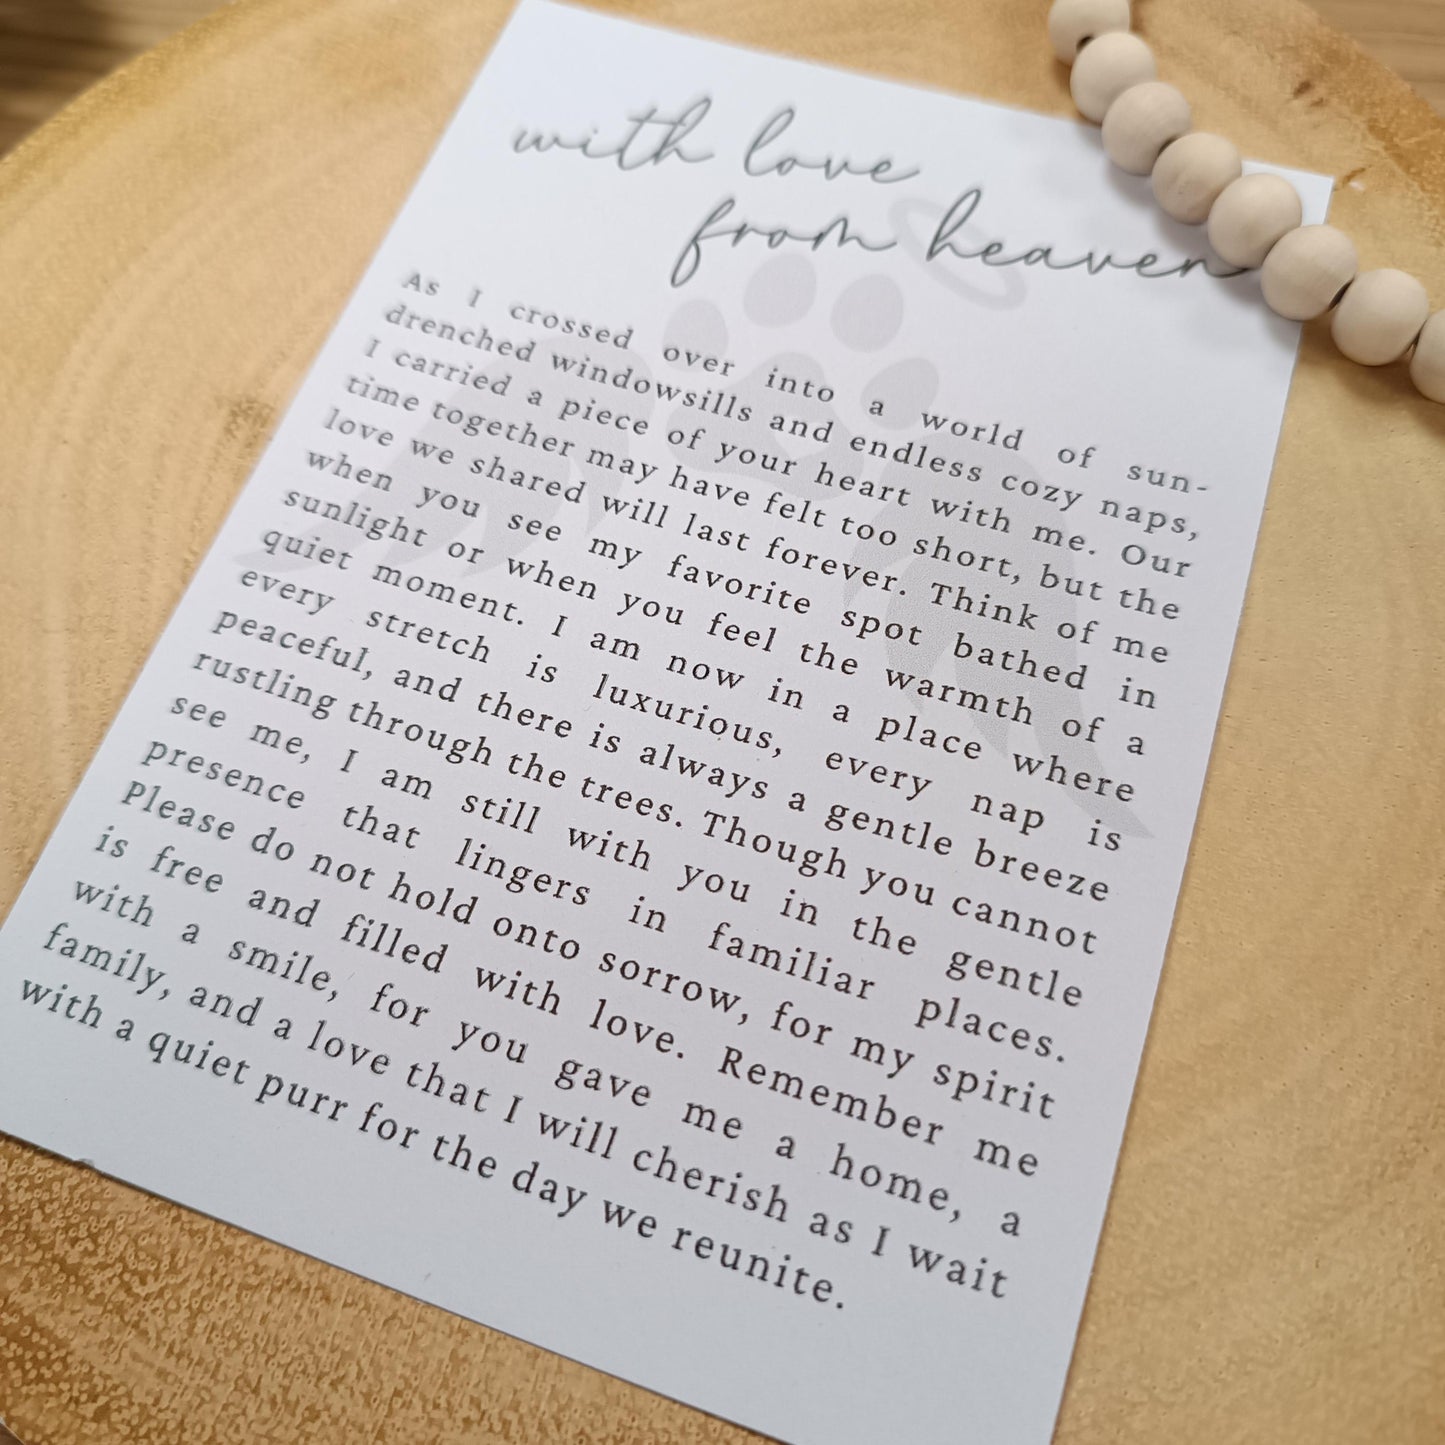 with love
from heaven
As I crossed over into a world of sun-
drenched windowsills and endless cozy naps,
I carried a piece of your heart with me. Our
time together may have felt too short, but the
love we shared will last forever. Think of me
when you see my favorite spot bathed in
sunlight or when you feel the warmth of a
quiet moment. I am now in a place where
every stretch is luxurious, every nap is
peaceful, and there is always a gentle breeze
rustling through the trees. Though you cannot
see me, I am still with you in the gentle
presence that lingers in familiar places.
Please do not hold onto sorrow, for my spirit
is free and filled with love. Remember me
with a smile, for you gave me a home, a
family, and a love that I will cherish as I wait
with a quiet purr for the day we reunite.